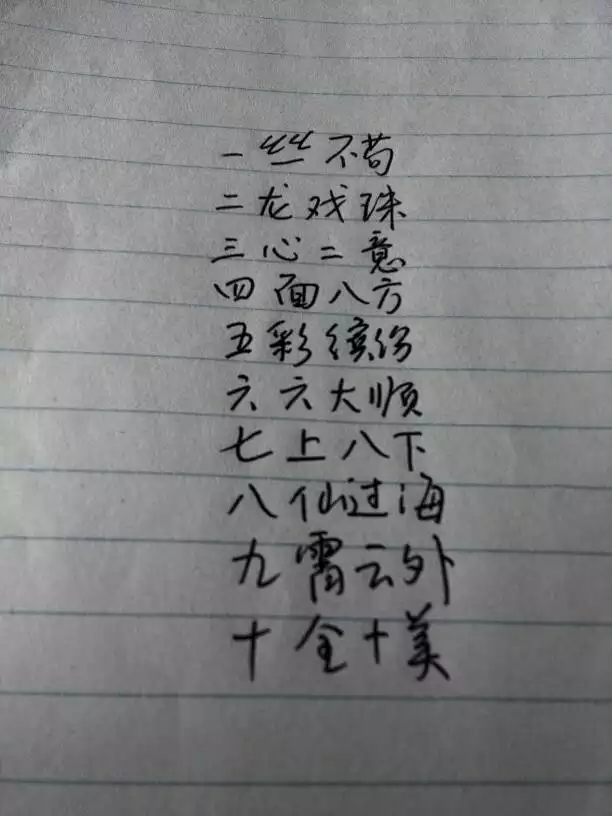 一丝不苟
二龙戏珠
三心二意
四面八方
五彩缤纷
六六大顺
七上八下
八仙过海
九霄云外
十全十美